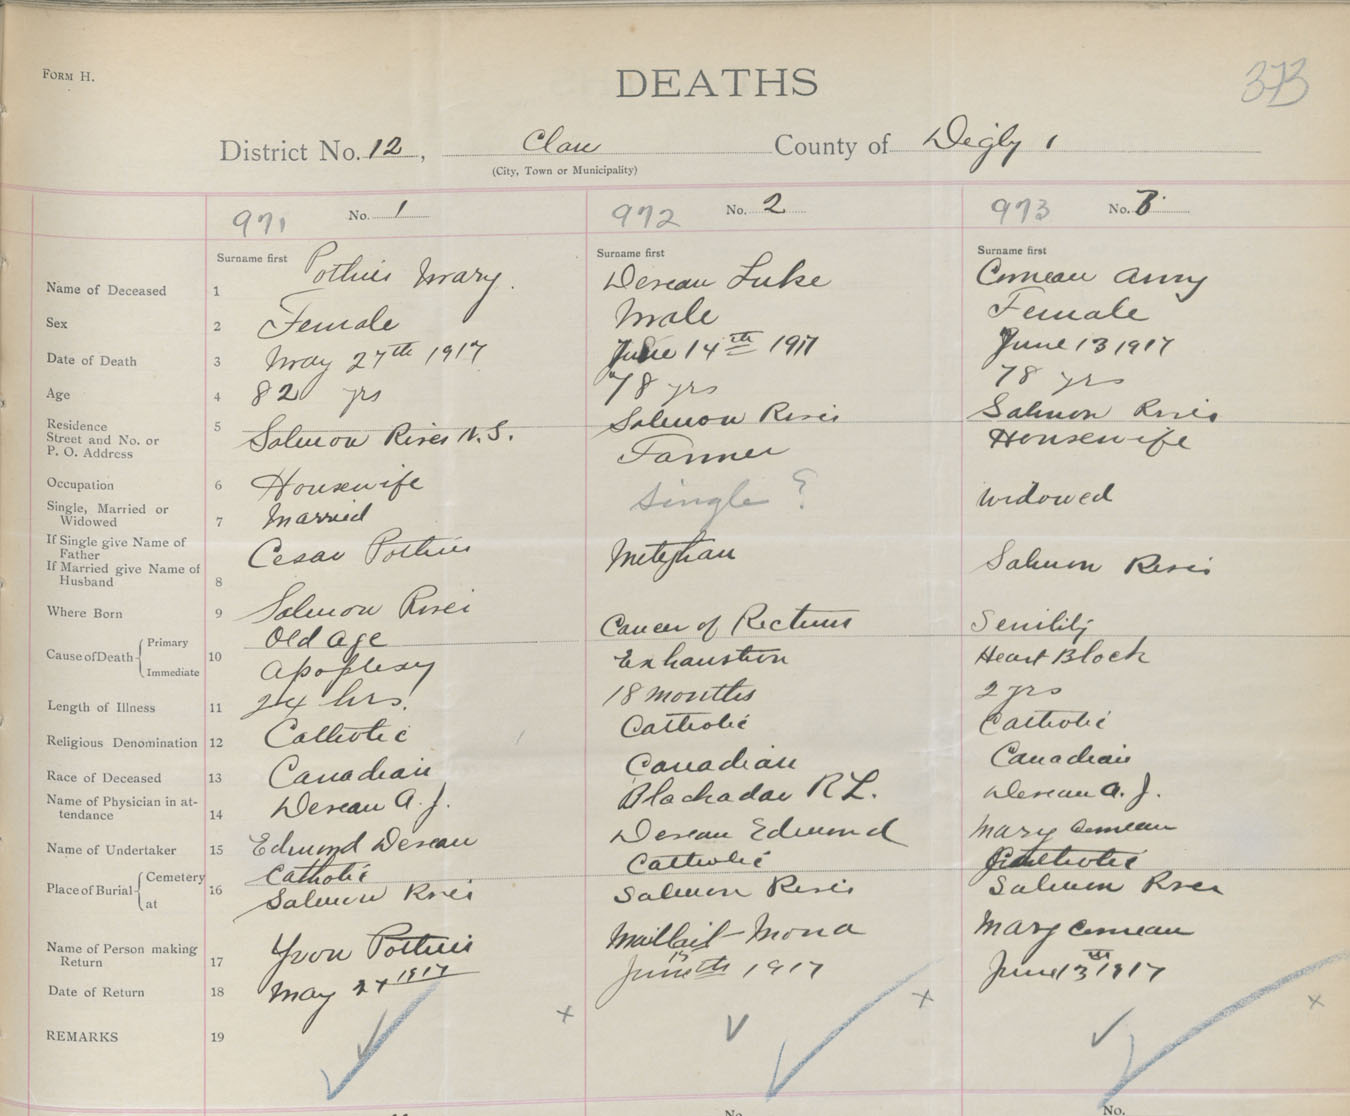 FORM H.
DEATHS
373
District No. 12, Clare County of Digby
(City, Town or Municipality)
971 No. 1
972 No. 2
973 No. 3
Surname first Surname first Surname first
Name of Deceased 1 Pothier Mary. Deveau Luke Comeau Anny
Sex 2 Female Male Female
Date of Death 3 May 27th 1917 June 14th 1917 June 13 1917
Age 4 82 yrs 78 yrs 78 yrs
Residence
Street and No. or
P. O. Address 5 Salmon River N.S. Salmon River Salmon River
Occupation 6 Housewife Farmer Housewife
Single, Married or
Widowed 7 Married Single ? Widowed
If Single give Name of
Father
If Married give Name of
Husband 8 Cesar Pothier
Where Born 9 Salmon River Meteghan Salmon River
Cause of Death Primary Old Age Cancer of Rectum Senility
10
Immediate Apoplexy Exhaustion Heart Block
Length of Illness 11 24 hrs. 18 months 2 yrs
Religious Denomination 12 Catholic Catholic Catholic
Race of Deceased 13 Canadian Canadian Canadian
Name of Physician in at-
tendance 14 Deveau A. J. Blackadar R L. Deveau A. J.
Name of Undertaker 15 Edmund Deveau Deveau Edmund Mary Comeau
Place of Burial Cemetery Catholic Catholic Catholic
16
at Salmon River Salmon River Salmon River
Name of Person making
Return 17 Yvon Pothier Mona Mary Comeau
Date of Return 18 May 27 1917 June 15th 1917 June 13th 1917
REMARKS 19
No. No.